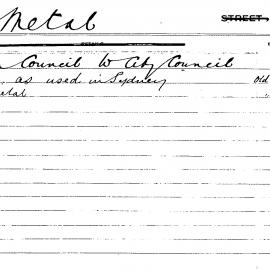 Metal
STREET,
Council W City Council
, as used in Sydney Old
etal